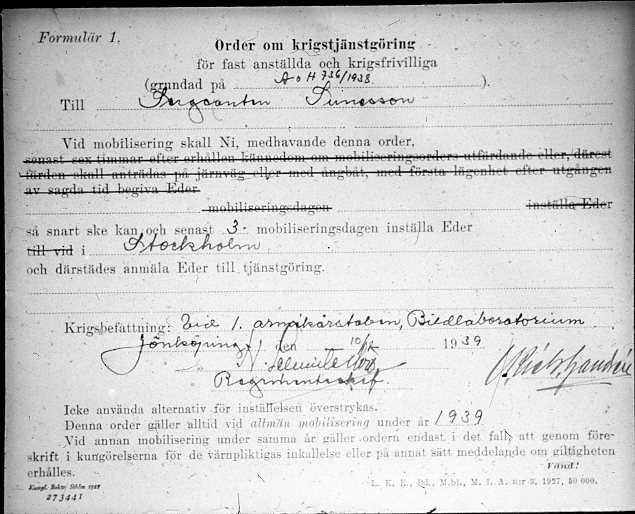 Formulär 1.
Order om krigstjänstgöring
för fast anställda och krigsfrivilliga
(grundad på A o H 736/1938 ).
Till Sergeanten Sunesson
Vid mobilisering skall Ni, medhavande denna order,
senast sex timmar efter erhållen kännedom om mobiliseringsorders utfärdande eller, därest
färden skall anträdas på järnväg eller med ångbåt, med första lägenhet efter utgången
av sagda tid begiva Eder
mobiliseringsdagen inställa Eder
så snart ske kan och senast 3. mobiliseringsdagen inställa Eder
till vid i Stockholm
och därstädes anmäla Eder till tjänstgöring.
Krigsbefattning: Vid 1. armékårstaben, Bildlaboratorium
Jönköping den 10/ 1939
Regementschef.
Icke använda alternativ för inställelsen överstrykas.
Denna order gäller alltid vid allmän mobilisering under år 1939
Vid annan mobilisering under samma år gäller ordern endast i det fall, att genom före-
skrift i kungörelserna för de värnpliktigas inkallelse eller på annat sätt meddelande om giltigheten
erhålles.
Vänd!
Kungl. Boktr. Sthlm 1927
273441
L. K. E., Bd., M.bl., M. I. A. n:r 3, 1927, 50 000.